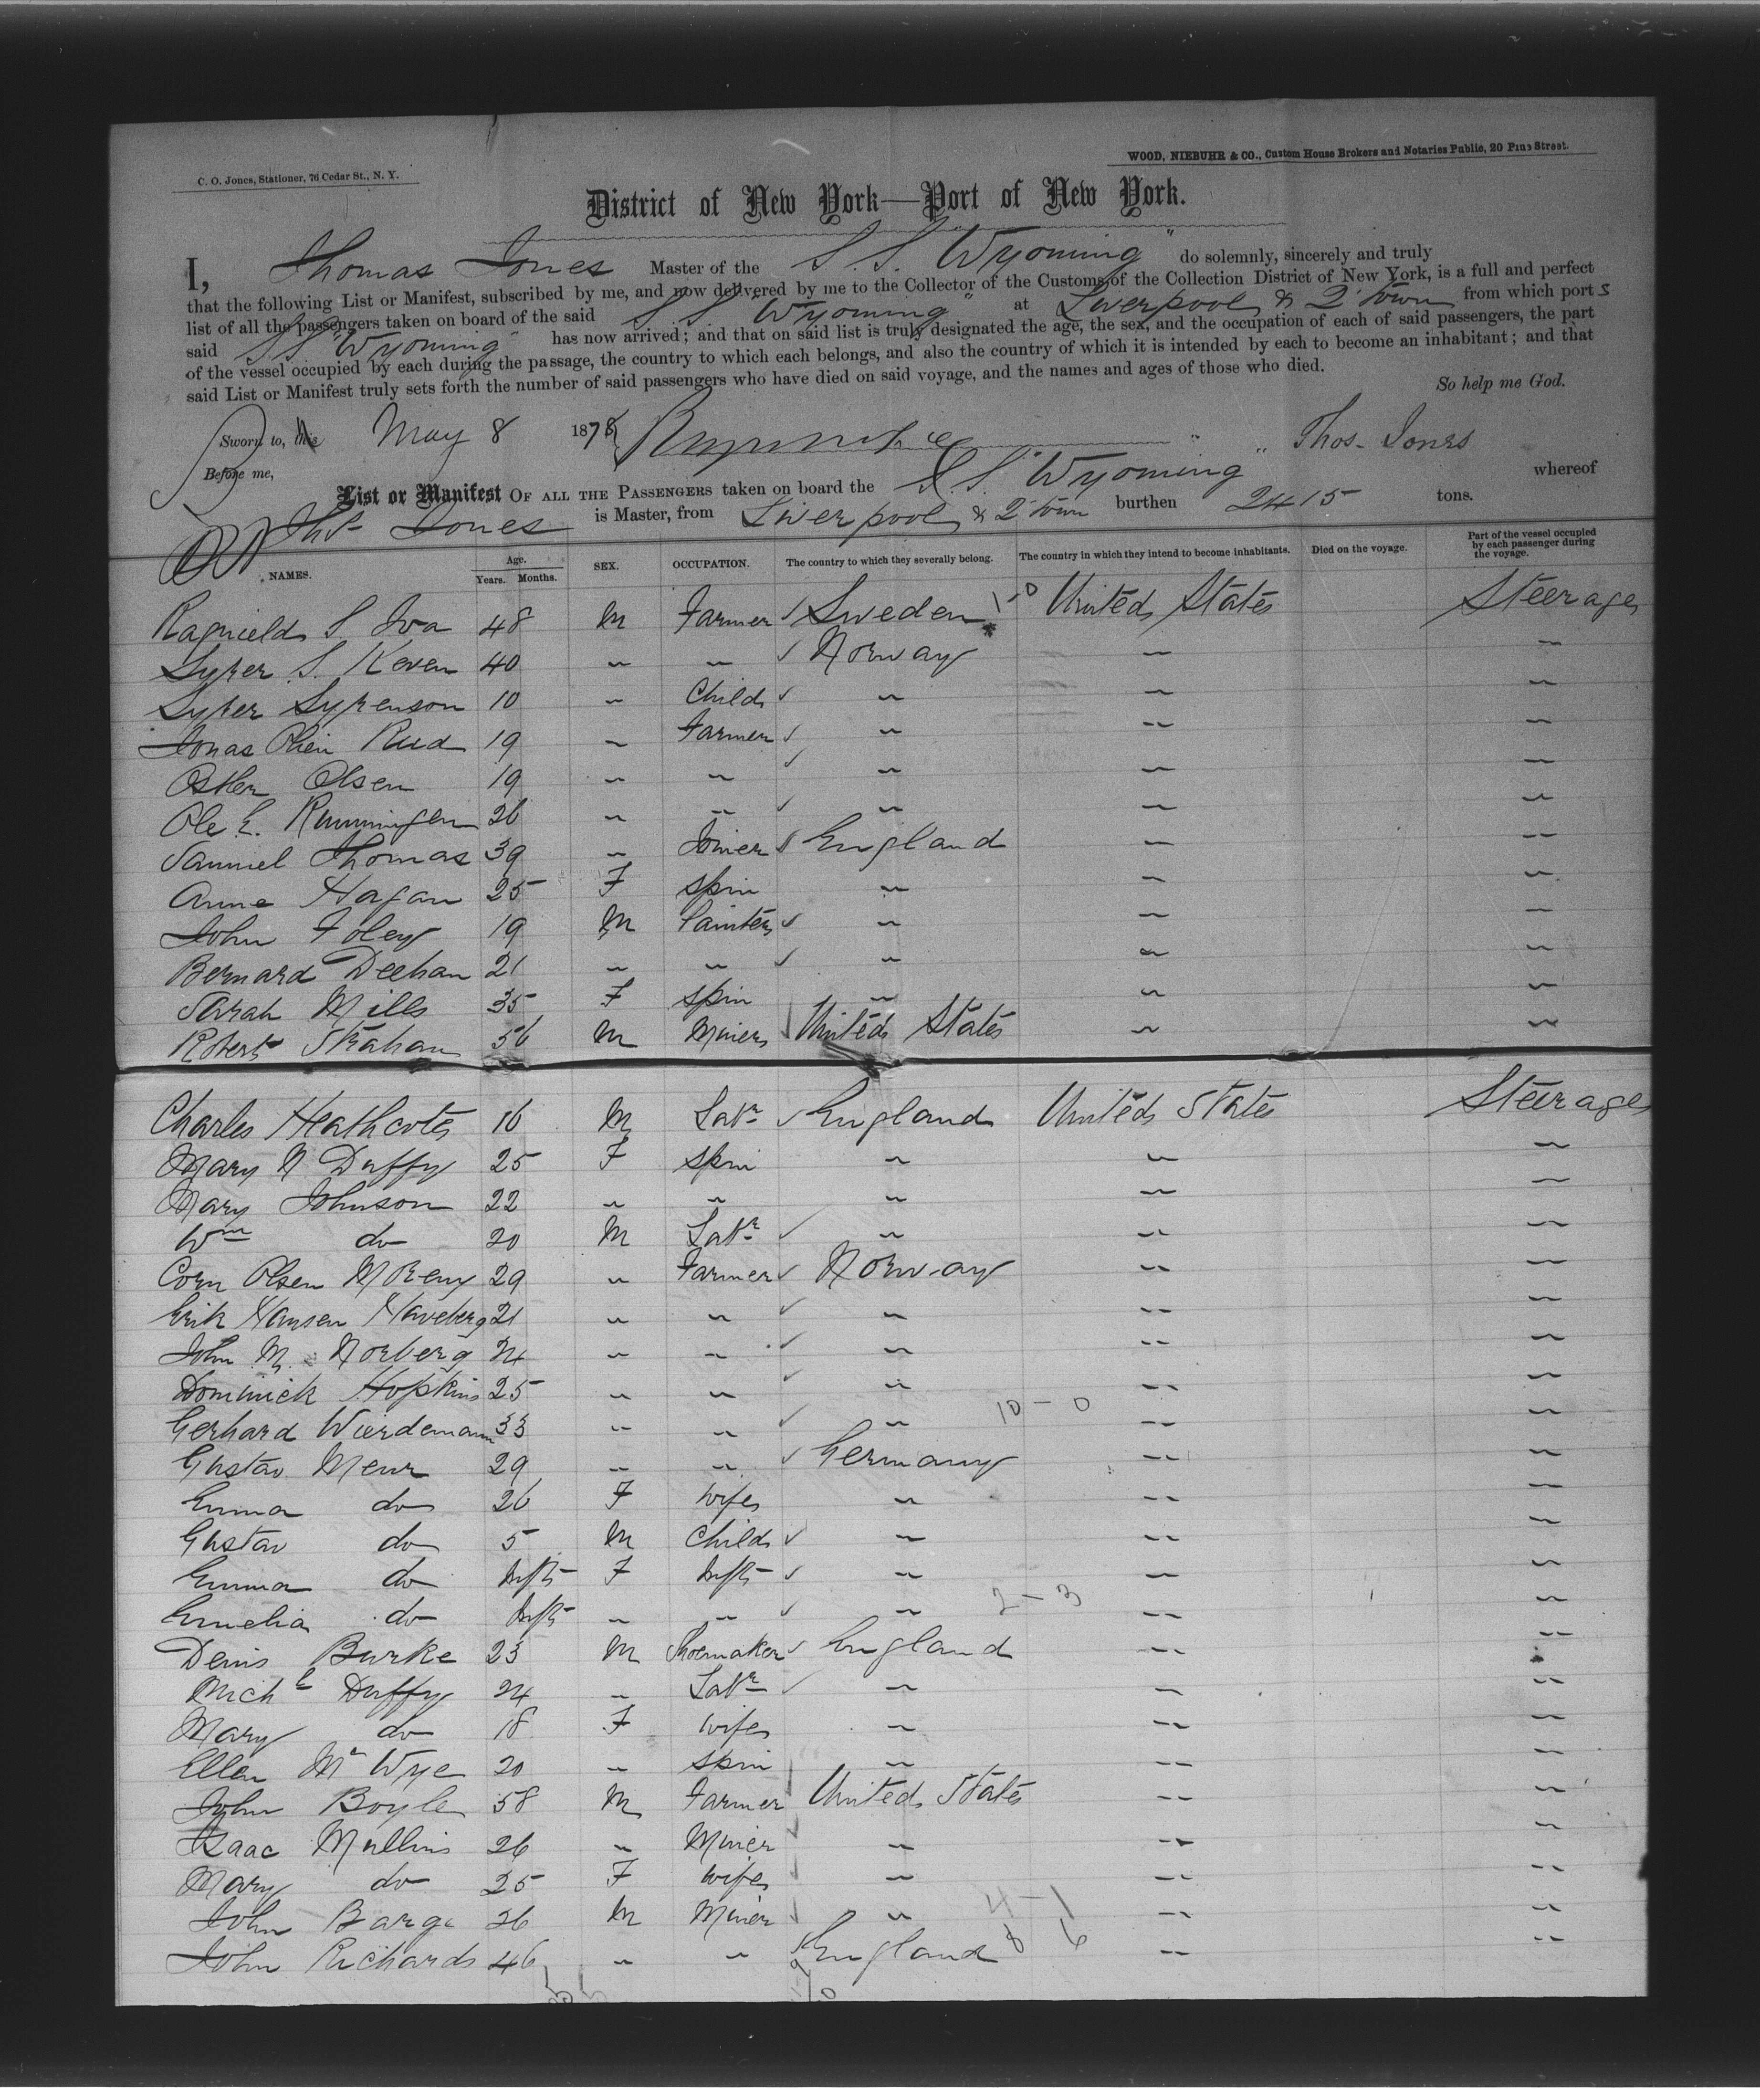 C. O. Jones, Stationer, 76 Cedar St., N. Y.
WOOD, NIEBUHR & CO., Custom House Brokers and Notaries Public, 20 Pine Street.
District of New York—Port of New York.
I, Thomas Jones Master of the S. S. "Wyoming" do solemnly, sincerely and truly
that the following List or Manifest, subscribed by me, and now delivered by me to the Collector of the Customs of the Collection District of New York, is a full and perfect
list of all the passengers taken on board of the said S S "Wyoming" at Liverpool & Q'town from which ports
said S S "Wyoming" has now arrived; and that on said list is truly designated the age, the sex, and the occupation of each of said passengers, the part
of the vessel occupied by each during the passage, the country to which each belongs, and also the country of which it is intended by each to become an inhabitant; and that
said List or Manifest truly sets forth the number of said passengers who have died on said voyage, and the names and ages of those who died.
So help me God.
Sworn to, this May 8 1878 Thos. Jones
Before me,
List or Manifest OF ALL THE PASSENGERS taken on board the S.S. "Wyoming" whereof
Thos Jones is Master, from Liverpool & Q'town burthen 2415 tons.
NAMES. Age. Years. Months. SEX. OCCUPATION. The country to which they severally belong. The country in which they intend to become inhabitants. Died on the voyage. Part of the vessel occupied by each passenger during the voyage.
S. 48 M Farmer Sweden 1-0 United States Steerage
S. 40 " " Norway " "
10 " Child " " "
Jonas Rud 19 " Farmer " " "
Olsen 19 " " " " "
Ole E. 26 " " " " "
Samuel Thomas 39 " Joiner England " "
Anne Hagan 25 F Spin " " "
John Foley 19 M Painter " " "
Bernard Deehan 21 " " " " "
Sarah Mills 35 F Spin " " "
Robert Strahan 56 M Miner United States " "
Charles Heathcote 16 M Labr England United States Steerage
Mary N Duffy 25 F Spin " " "
Mary Johnson 22 " " " " "
Wm do 20 M Labr " " "
Olsen 29 " Farmer Norway " "
Erik Hansen 21 " " " " "
John M. Norberg 24 " " " " "
Dominick Hopkins 25 " " " " "
Gerhard Wierdemann 33 " " " 10-0 " "
Gustav Meur 29 " " Germany " "
Emma do 26 F Wife " " "
Gustav do 5 M Child " " "
Emma do Inft F Inft " " "
Emelia do Inft " " " 2-3 " "
Denis Burke 23 M Shoemaker England " "
Michl Duffy 24 " Labr " " "
Mary do 18 F Wife " " "
Ellen Mc Wye 20 " Spin " " "
John Boyle 58 M Farmer United States " "
Isaac Mullins 26 " Miner " " "
Mary do 25 F Wife " " "
John Barge 26 M Miner " 4-1 " "
John Richards 46 " " England 8 6 " "